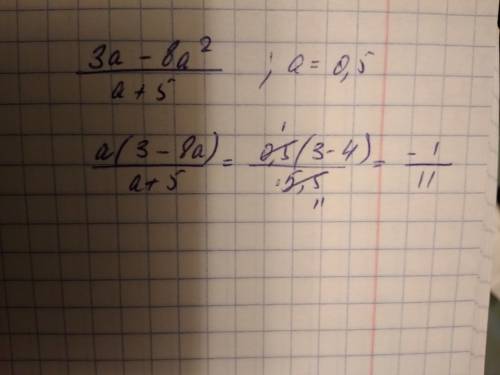 (3a - 8a²)/(a + 5) ; a = 0,5
a(3 - 8a)/(a + 5) = 0,5(3 - 4)/5,5 = -1/11